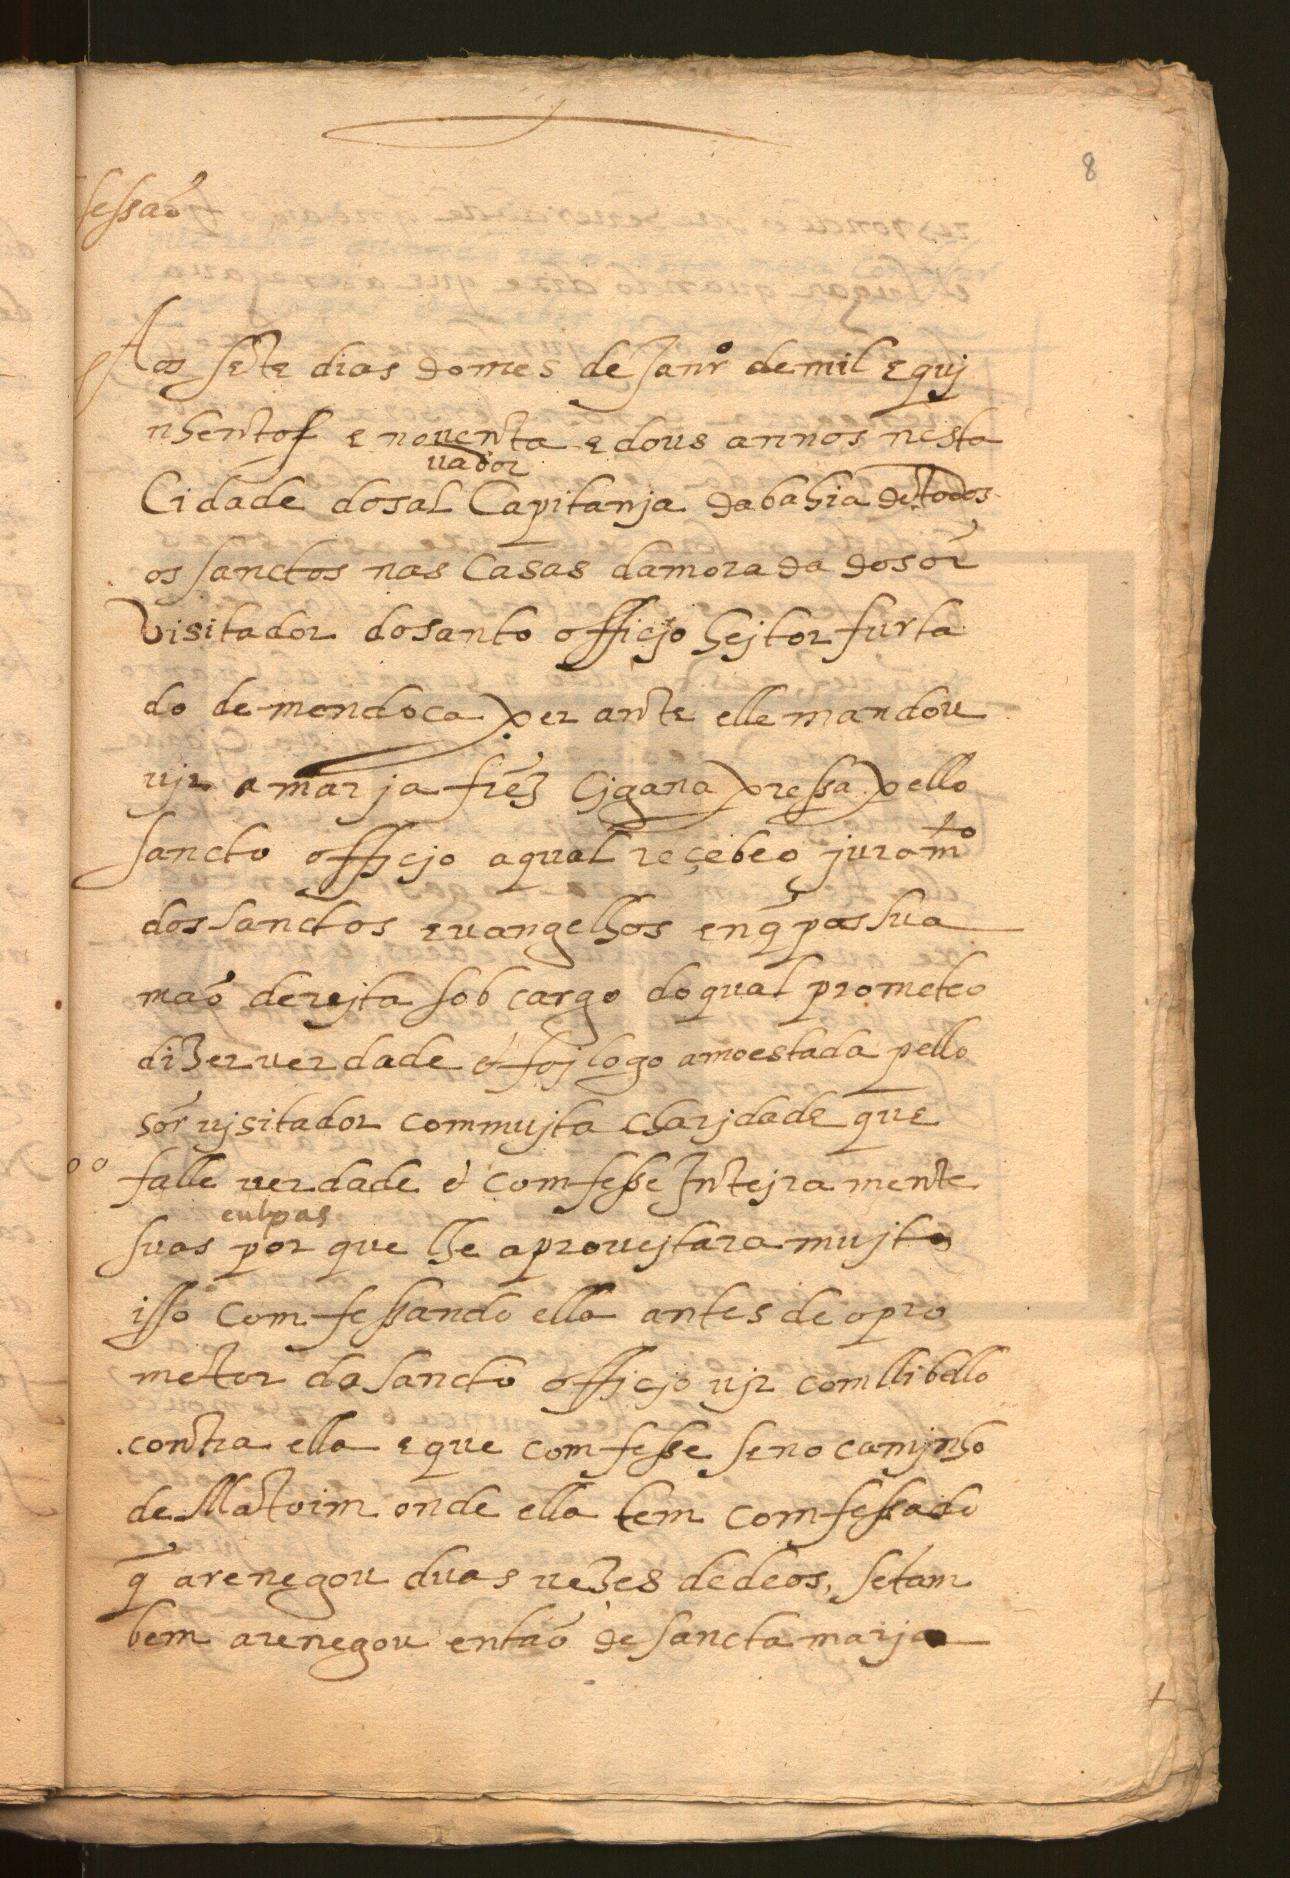 8
sessaõ
Aos sete dias do mes de Janrº de mil e quj
nhentos e noventa e dous annos nesta
vador
Cidade do sal Capitanja da bahia de todos
os sanctos nas Casas da morada do sõr
visitador do santo officjo hejtor furta
do de mendoca perante elle mandou
vjr a marja frēz Cjgana pressa pello
sancto officjo a qual reçebeo juramto
dos sanctos evangelhos en q̃ pos sua
maõ derejta sob cargo do qual prometeo
dizer verdade e foj logo amoestada pello
sõr vjsitador com mujta charjdade que
falle verdade e comfesse Intejramente
culpas
suas por que lhe aprovejtara mujto
isso comfessando ella antes de o pro
mettor da sancto officjo vjr com llibello
contra ella e que comfesse se no camjnho
de Matoim onde ella tem comfessado
q̃ arenegou duas vezes de deos, se tam
bem arenegou entaõ de sancta marja